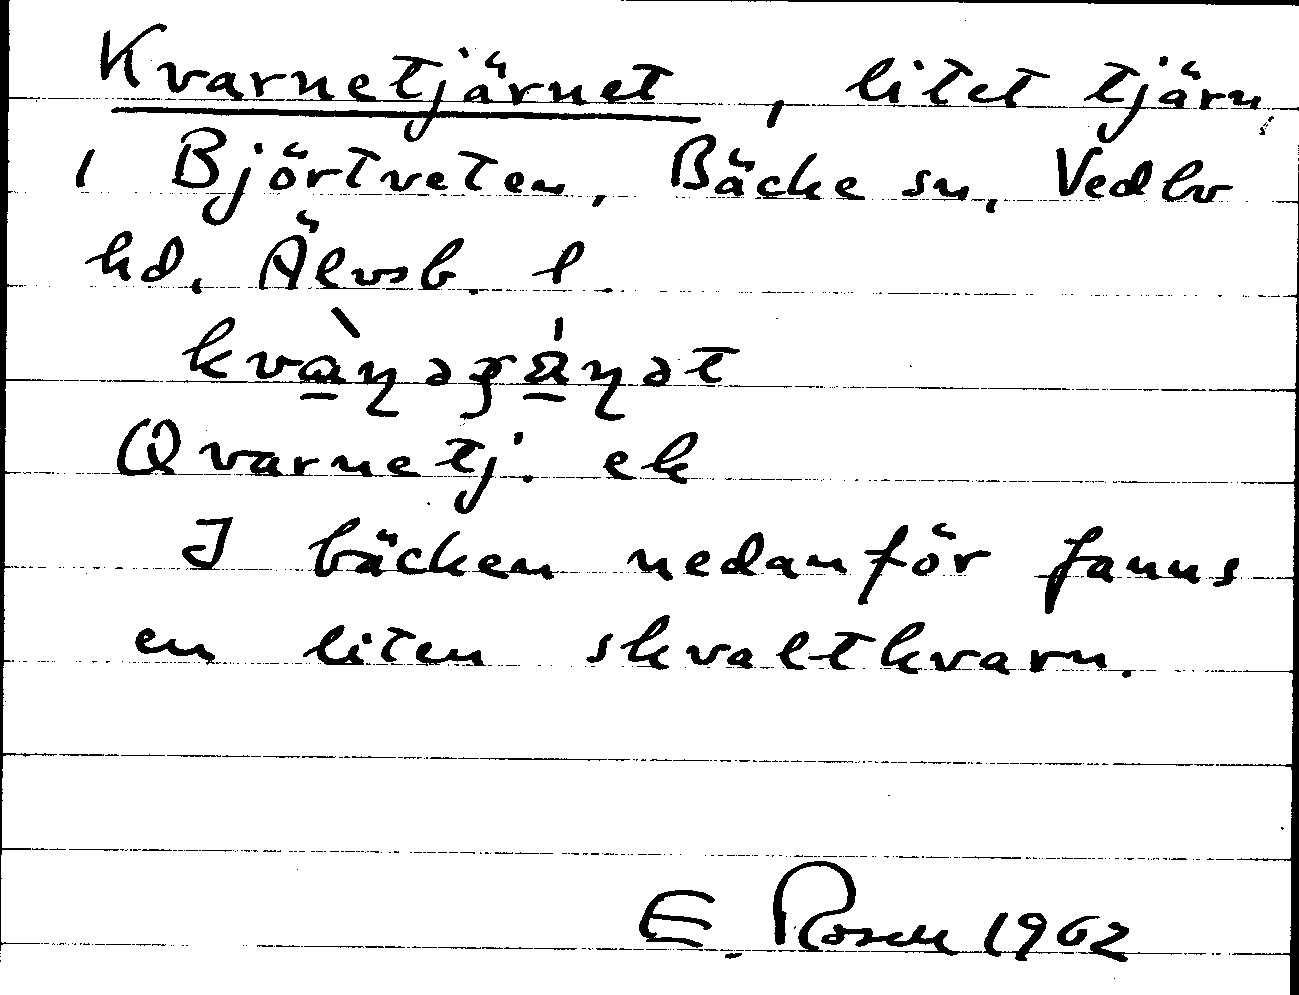 Kvarnetjärnet, litet tjärn,
i Björtveten, Bäcke sn, Vedbo
hd, Älvsb. l.
Qvarnetj. ek
I bäcken nedanför fanns
en liten skvaltkvarn.
E. Rosell 1962